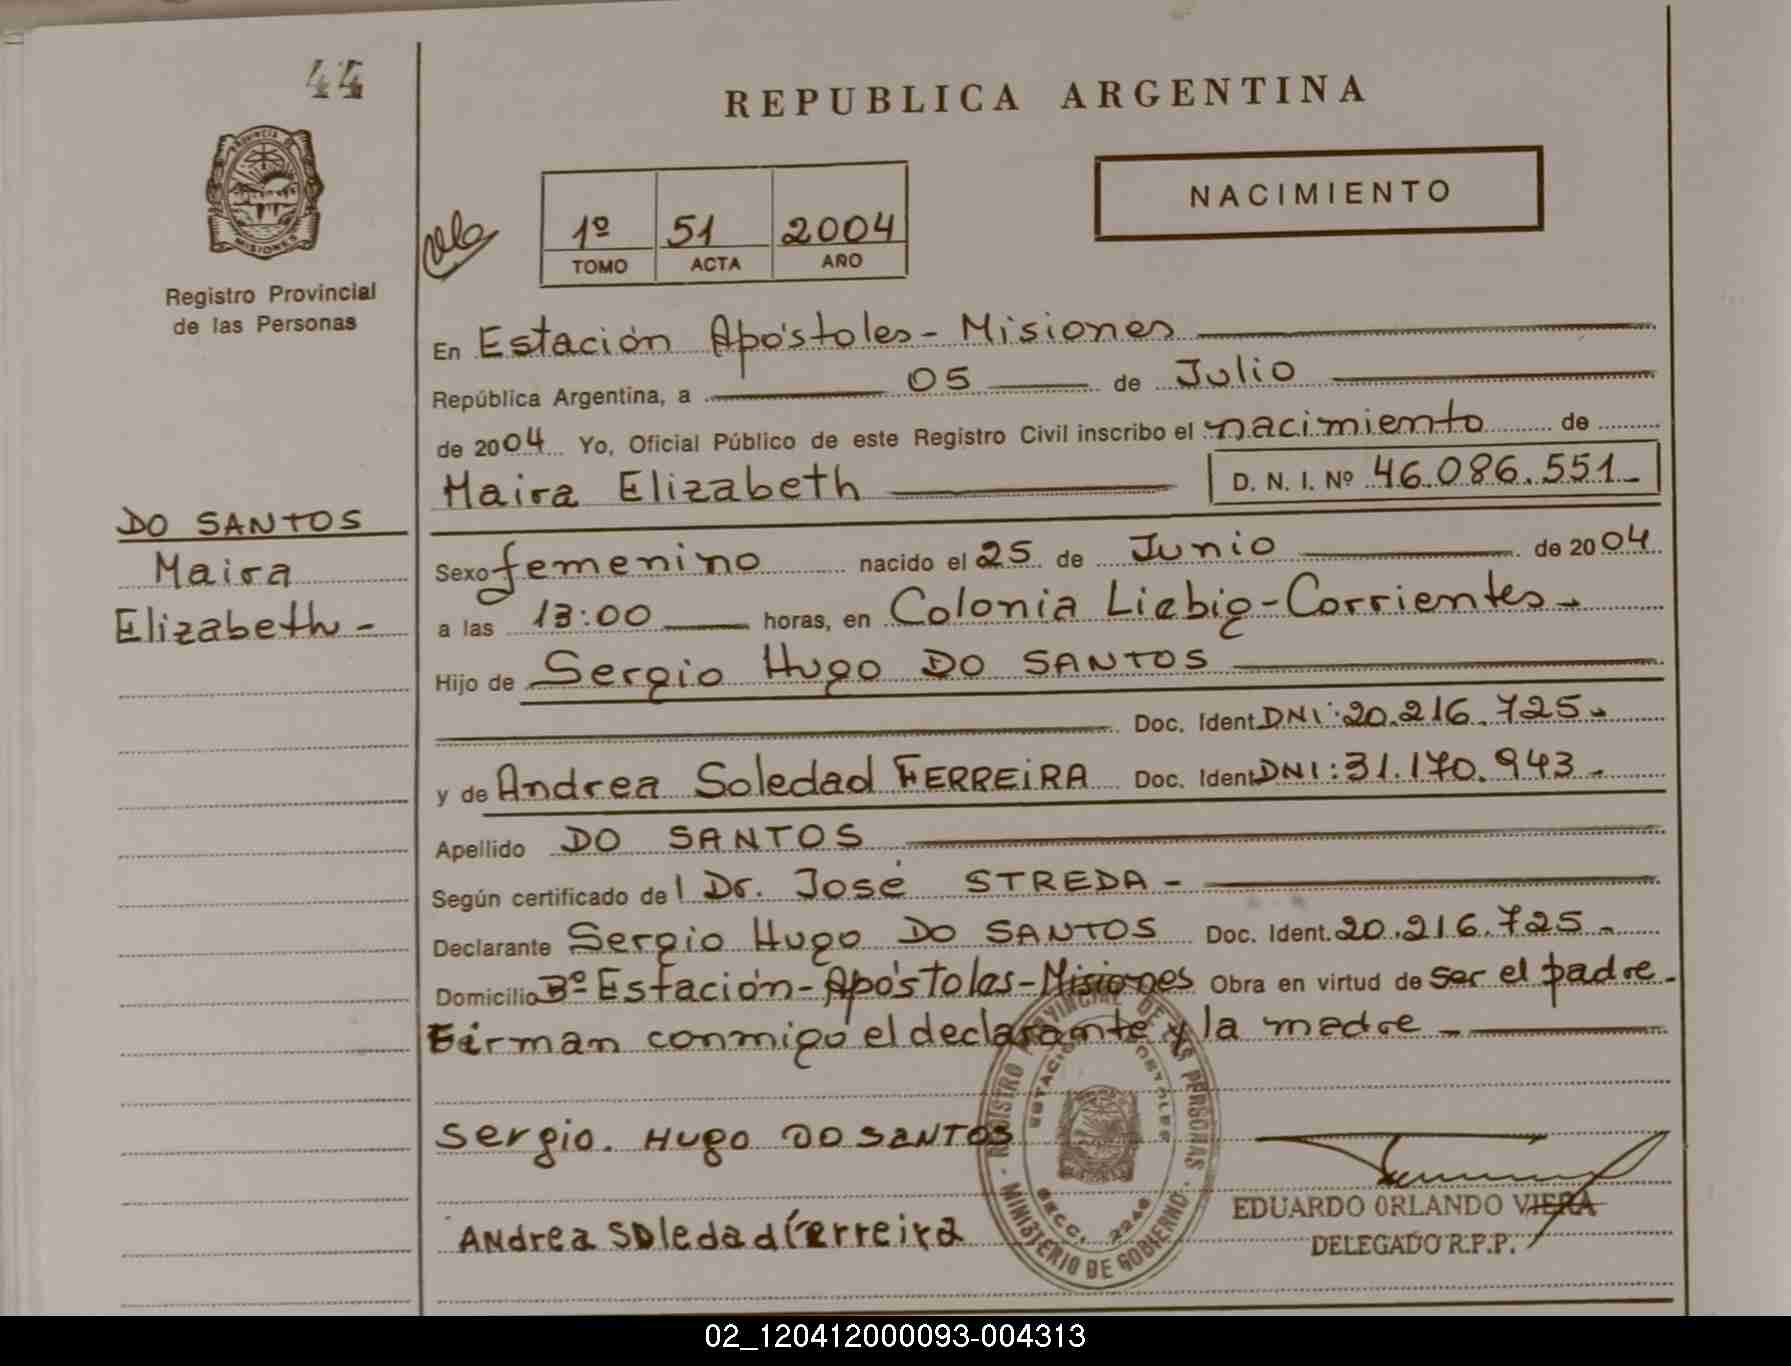 44
REPUBLICA ARGENTINA
PROVINCIA D MISIONES
Registro Provincial
de las Personas
1º 51 2004
TOMO ACTA AÑO
NACIMIENTO
En Estación Apóstoles - Misiones
República Argentina, a 05 de Julio
de 2004 Yo, Oficial Público de este Registro Civil inscribo el nacimiento de
Maira Elizabeth D. N. I. Nº 46.086.551
DO SANTOS
Maira
Elizabeth -
Sexo femenino nacido el 25 de Junio de 2004
a las 13:00 horas, en Colonia Liebig - Corrientes -
Hijo de Sergio Hugo DO SANTOS
Doc. Ident. DNI: 20.216.725 -
y de Andrea Soledad FERREIRA Doc. Ident. DNI: 31.170.943 -
Apellido DO SANTOS
Según certificado de l Dr. José STREDA -
Declarante Sergio Hugo DO SANTOS Doc. Ident. 20.216.725 -
Domicilio Bº Estación - Apóstoles - Misiones Obra en virtud de ser el padre -
Firman conmigo el declarante y la madre -
Sergio. Hugo DO SANTOS
Andrea Soledad Ferreira
REGISTRO PROVINCIAL DE LAS PERSONAS
MINISTERIO DE GOBIERNO
SECC. 2240
EDUARDO ORLANDO VIERA
DELEGADO R.P.P.
02_120412000093-004313